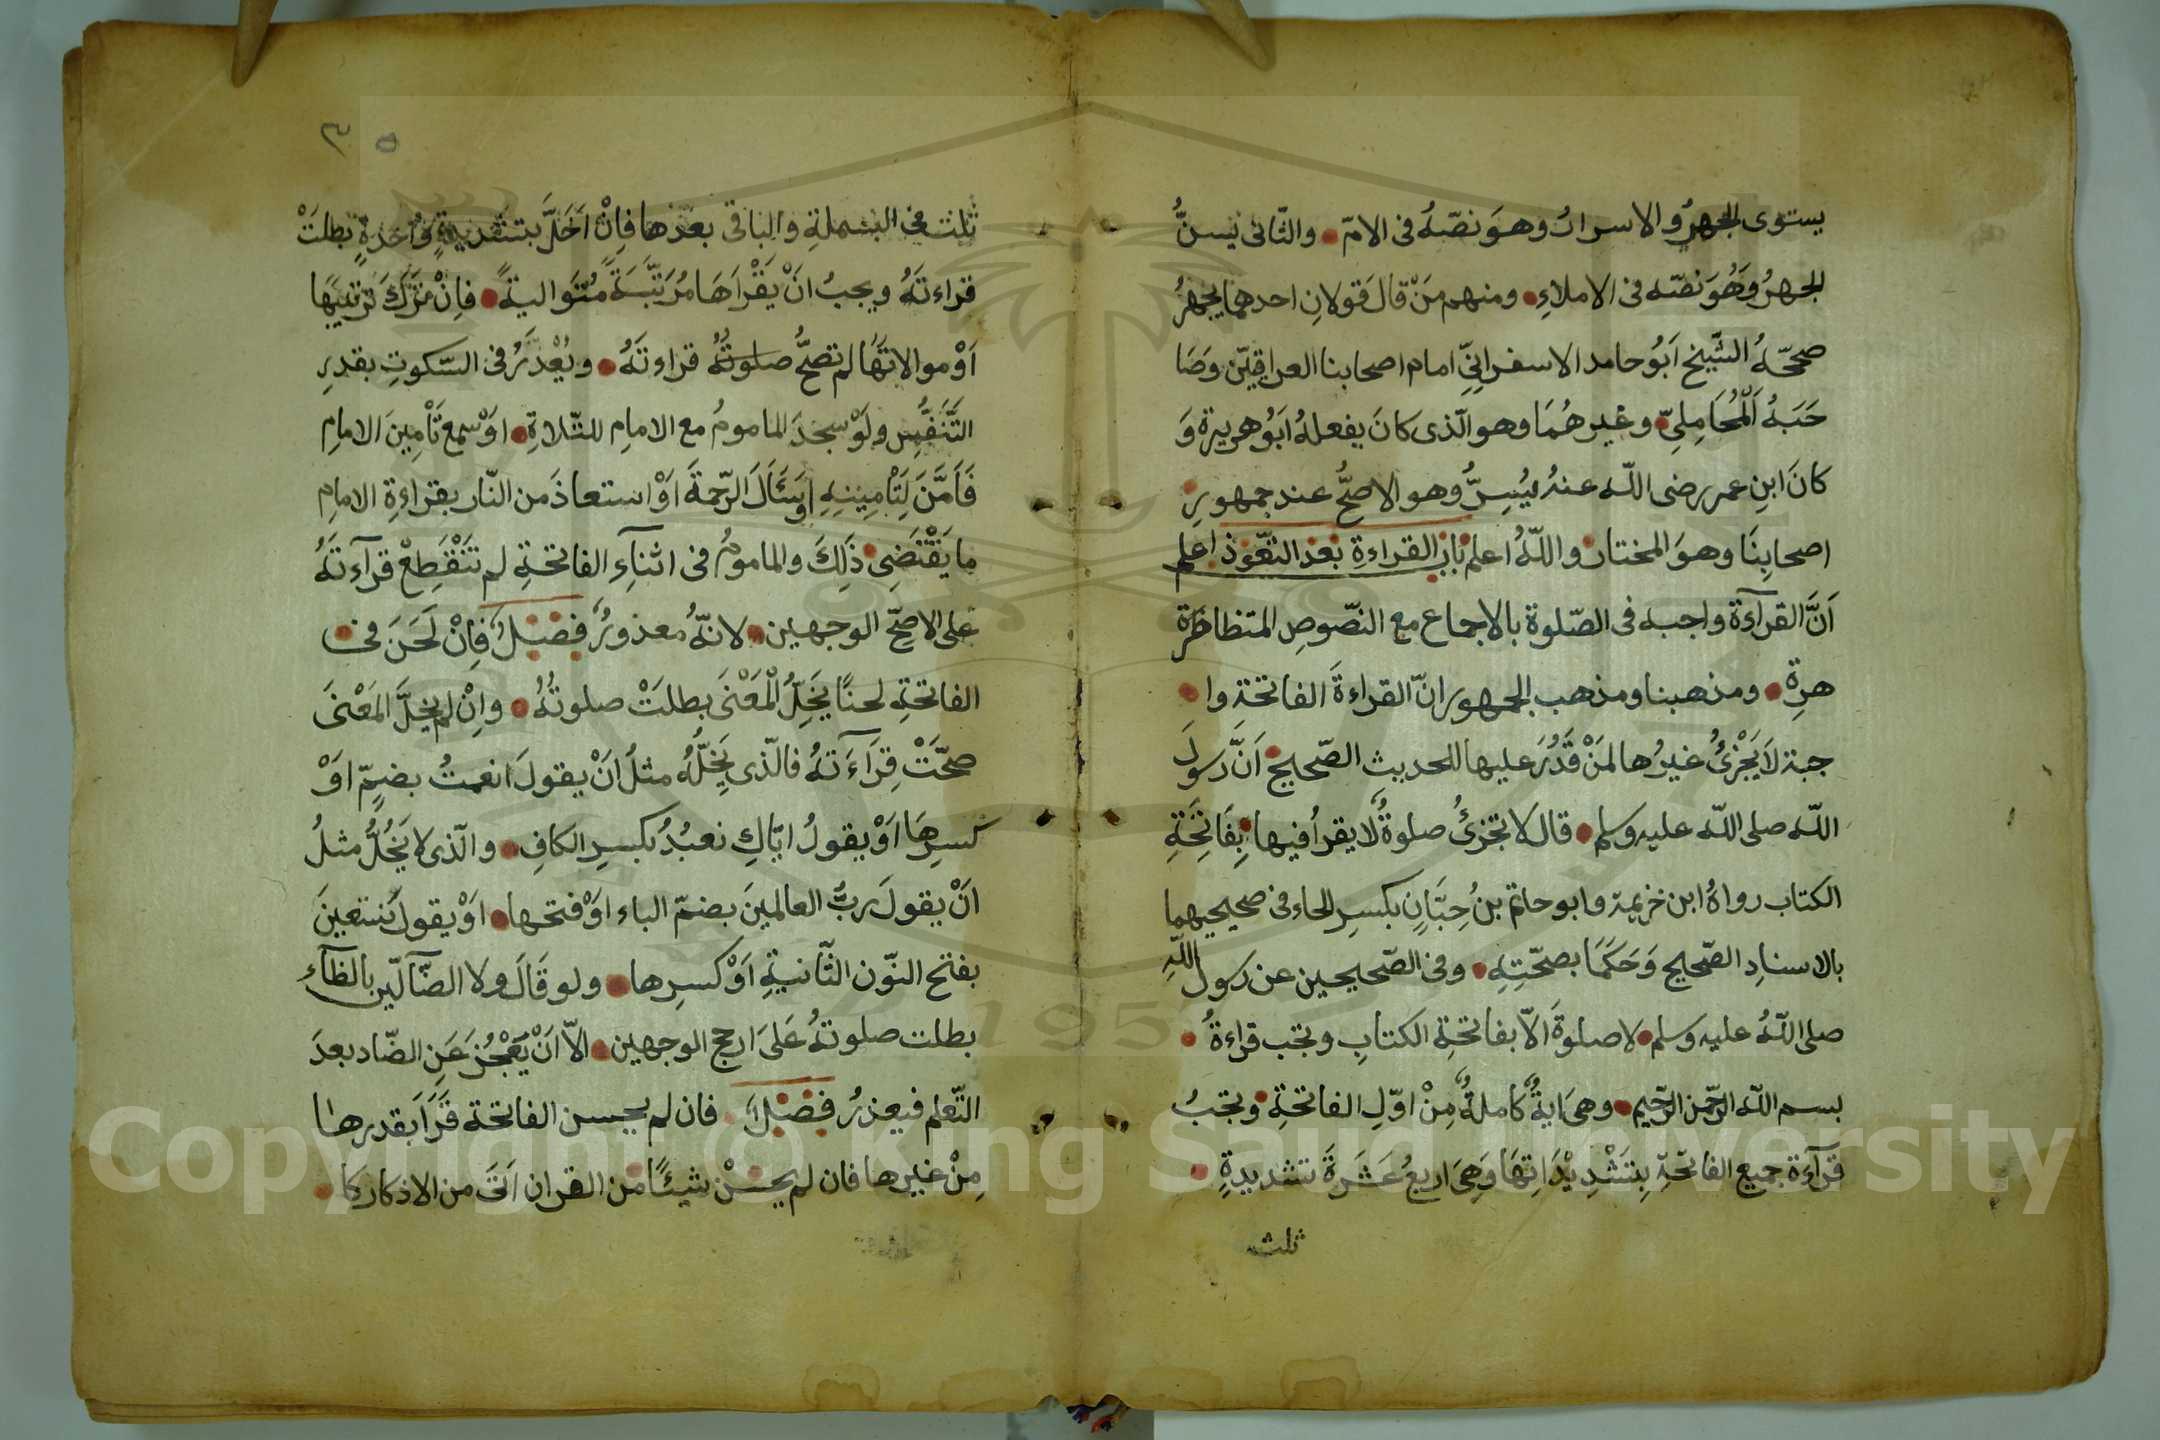 يستوى الجهرُ والاسرارُ وهوَ نصّهُ فى الامّ والثّانى يسنُّ
الجهرُ وَهُوَ نصّه فى الاملاءِ ومنهم مَنْ قالَ قولانِ احدهما يجهرُ
صحّحهُ الشّيخ اَبُو حامد الاسفراينّى امام اصحابنا العراقيّن وصَا
حَبَهُ اَلْمُحَامِلىّ وغيرهُمَا وهو الّذى كانَ يفعلهُ اَبُو هريرة وَ
كانَ ابنِ عمر رضى اللّه عنهُ يُسِرُّ وهو الاصحُّ عند جمهورِ
اصحابِنَا وهوَ المختار واللّهُ اعلم بابُ القراءةِ بعد التّعّوذ اعلم
اَنَّ القرآءةَ واجبه فى الصّلوة بالاجماع مع النصّوصِ المتظاهرَة
هرةِ ومذهبنا ومذهب الجمهور انّ القراءةَ الفاتحة وا
جبة لاَ يَجْزىُٔ غيرُها لمَنْ قَدُرَ عليها للحديث الصّحيح اَنَّ رسولَ
اللّه صلى اللّه عليه وسلم قال لا تجزىُٔ صلوةٌ لا يقرأ فيها بِفَاتِحَةِ
الكتاب رواهُ ابن خزيمة وابو حاتم بنُ حِبَّانٍ بكسرِ الحاء فى صحيحيهما
بالاسنادِ الصّحيح وَحَكَمَا بصحّتِهِ وفى الصّحيحين عن رسول اللّهِ
صلى اللّهُ عليه وسلم لا صلوةَ الاّ بفاتحةِ الكتابِ وتجب قراءةُ
بسم اللّه الرّحمن الرّحيم وهىَ ايةٌ كاملةٌ مِنْ اوّلِ الفاتحةِ وتجبُ
قرآءة جميع الفاتحّةِ بِتَشْدِيْدَاتِهَا وَهِىَ اربعُ عَشَرَةَ تشديدةٍ
ثلث
٣٥
ثلث فى البسملةِ والباقى بعدَها فاِنْ اَخَلَّ بتشديدةٍ واحدةٍ بطلَتْ
قراءتَهُ ويجبُ انْ يَقْرأَهَا مُرَتَّبَةً مُتَوَاليةً فاِنْ تَرَكَ تَرْتيبَهَا
اَوْ موالاتهَا لم تصحُّ صلوتُهُ قراءتَهُ ويُعْذَرُ فى السّكوتِ بقدرِ
التَّنَفُّسِ ولَوْ سجدَ المامومُ مع الامامِ للتّلاوةِ اوْ سمع تأمِينَ الامامِ
فَاَمَّنَ لِتَامِينِهِ اوسَئَالَ الرّحمةَ اوْ استعاذَ من النّار بقراءةِ الامامِ
ما يَقْتَضِى ذَلِكَ والمامومُ فى اثنآءِ الفاتحةِ لم تَنْقَطِعْ قرآءتَهُ
على الاصحّ الوجهين لانّهُ معذورٌ فصْلٌ فاِنْ لَحَنَ فى
الفاتحةِ لحنًا يَخَلُّ الْمَعْنَى بطلَتْ صلوتُهُ واِنْ لم يخلَّ المَعْنَى
صحّتْ قِرَآءَتَهُ فالّذى يَخِلَّهُ مثلُ انْ يقولَ انعمتُ بضمٍّ اوْ
كسرِهَا اوْ يقولُ ايّاكِ نعبُدُ بكسرِ الكافِ والّذى لا يَخُلُّ مثلُ
انْ يقولَ ربُّ العالمينَ بضمّ الباء اوْ فتحها اوْ يقولَ نستعينَ
بفتح النّون الثّانيةِ اوْ كسرِها ولو قَالَ ولا الضّآلّين بالظآء
بطلت صلوتهُ عَلىَ ارجح الوجهين الاّ اَنْ يَعْجُزَ عَنِ الضّاد بعدَ
التّعلم فيعذرُ فصْلٌ فان لم يحسن الفاتحة قَرَاَ بقدرها
مِنْ غيرها فان لم يحسنْ شيئًا من القران اَتَى من الاذكار كا
Copyright © King Saud University
1957